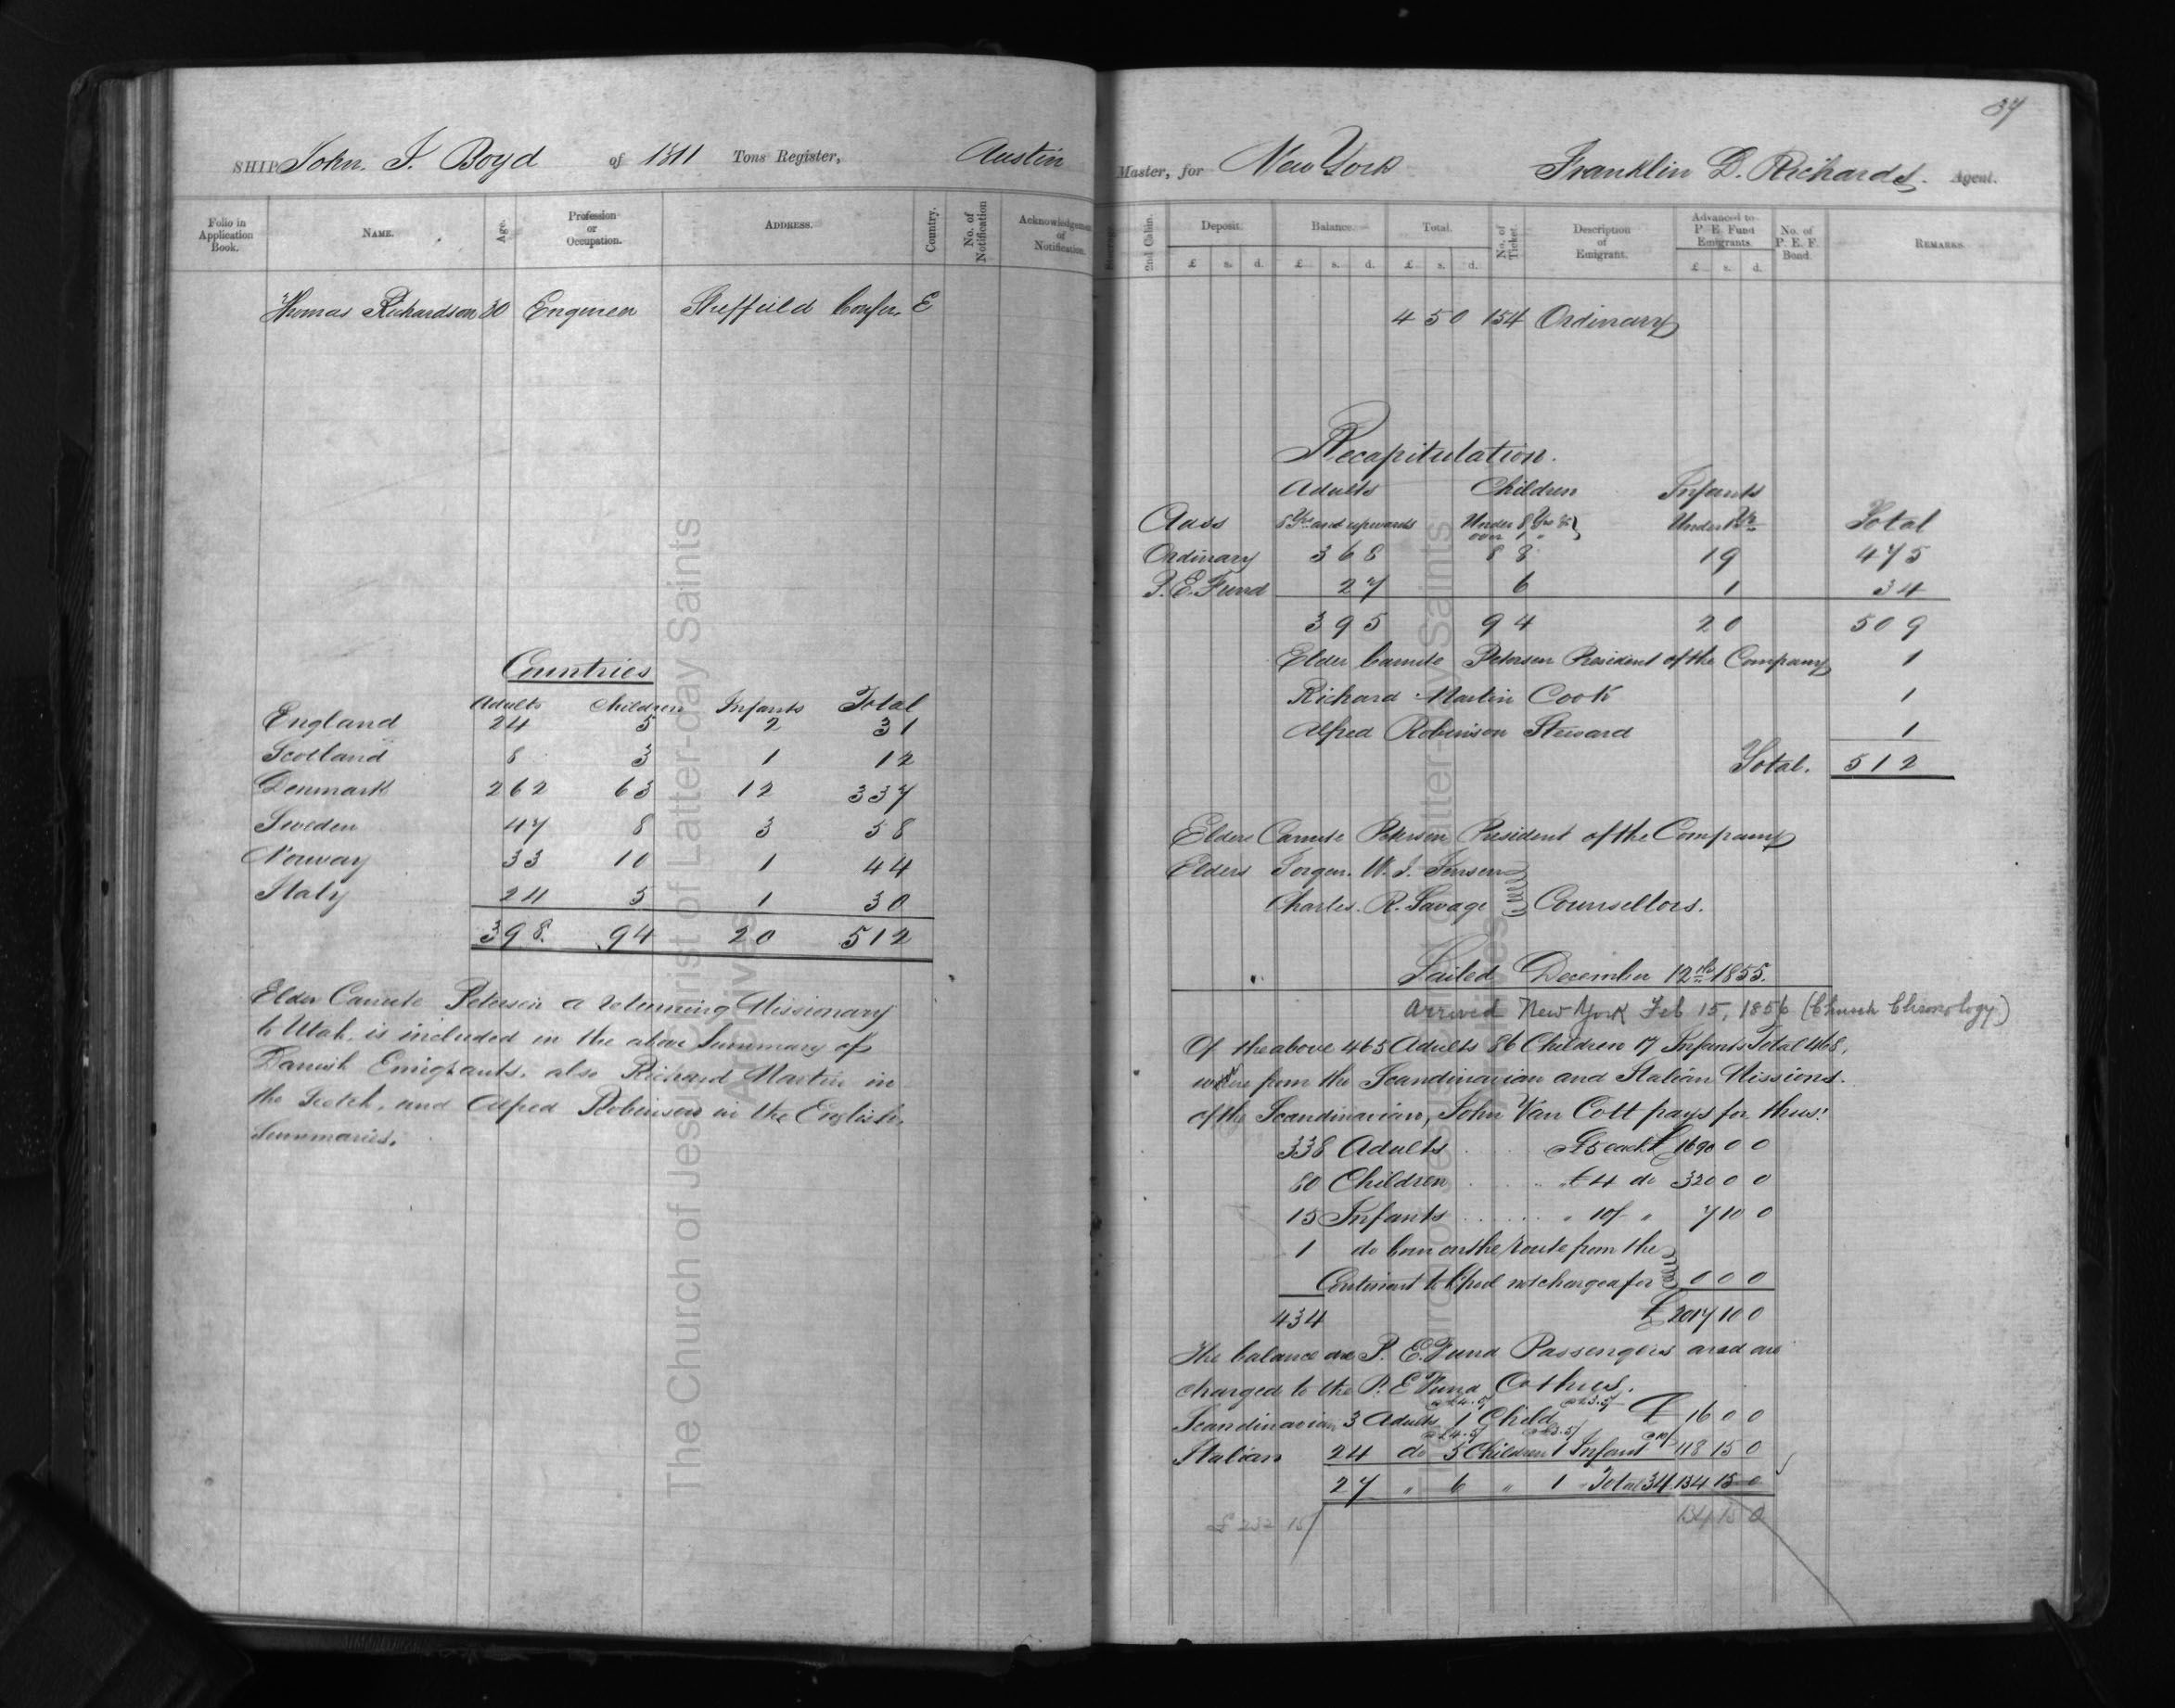 SHIP John. J. Boyd of 1311 Tons Register, Austin
Folio in Application Book. NAME. Age. Profession or Occupation. ADDRESS. Country. No. of Notification Acknowledgment of Notification.
Thomas Richardson 30 Engineer Sheffield Confer. E
Countries
Adults Children Infants Total
England 24 5 2 31
Scotland 8 3 1 12
Denmark 262 63 12 337
Sweden 47 8 3 58
Norway 33 10 1 44
Italy 24 5 1 30
398. 94 20 512
Elder Canute Petersen a returning Missionary
to Utah, is included in the above Summary of
Danish Emigrants, also Richard Martin in
the Scotch, and Alfred Robinson in the English,
Summaries.
37
Master, for New York Franklin D. Richards. Agent.
2nd Cabin. Deposit. Balance. Total. No. of Ticket. Description of Emigrant. Advanced to P. E. Fund Emigrants No. of P. E. F. Bond. REMARKS.
£ s. d. £ s. d. £ s. d. £ s. d.
4 5 0 154 Ordinary
Recapitulation.
Adults Children Infants
Class 8 Yrs and upwards Under 8 Yrs & over 1 " Under 1 Yr Total
Ordinary 368 88 19 475
P. E. Fund 27 6 1 34
395 94 20 509
Elder Canute Petersen President of the Company 1
Richard Martin Cook 1
Alfred Robinson Steward 1
Total. 512
Elder Canute Petersen President of the Company
Elders Jorgen. W. J. Jensen
Charles. R. Savage Counsellors.
Sailed December 12th 1855.
Arrived New York Feb 15, 1856 (Church Chronology)
Of the above 465 Adults 86 Children 17 Infants Total 468,
were from the Scandinavian and Italian Missions.
of the Scandinavian, John Van Cott pays for thus:
338 Adults £5 each £ 1690 0 0
80 Children £4 do 320 0 0
15 Infants " 10/- " 7 10 0
1 do born on the route from the
Continent to L'pool not charged for 0 0 0
434 £ 2017 10 0
The balance are P. E. Fund Passengers and are
charged to the P. E Fund Co thus.
@ £4.5/ @ £3.5/
Scandinavian 3 Adults 1 Child £ 16 0 0
@ £4.5/ @ £3.5/ @ 10/
Italian 24 do 5 Children 1 Infant 118 15 0
27 " 6 " 1 Total 34 134 15 0
£ 232 15/ 134 15 0
The Church of Jesus Christ of Latter-day Saints
Archives
The Church of Jesus Christ of Latter-day Saints
Archives